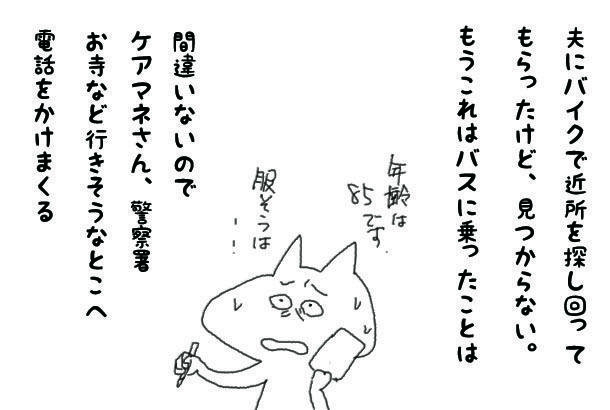 夫にバイクで近所を探し回って
もらったけど、見つからない。
もうこれはバスに乗ったことは
年齢は
85です.
服そうは
・・
間違いないので
ケアマネさん、警察署
お寺など行きそうなとこへ
電話をかけまくる